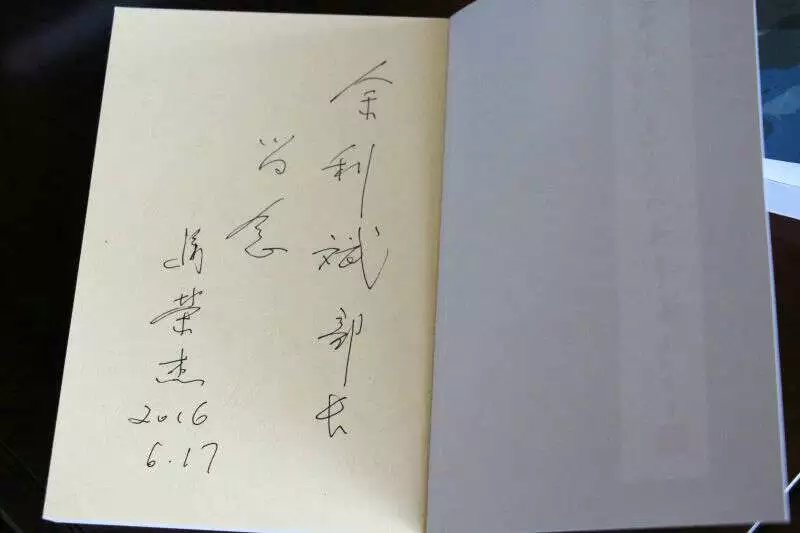 余利斌部长
留念
荣杰
2016
6.17